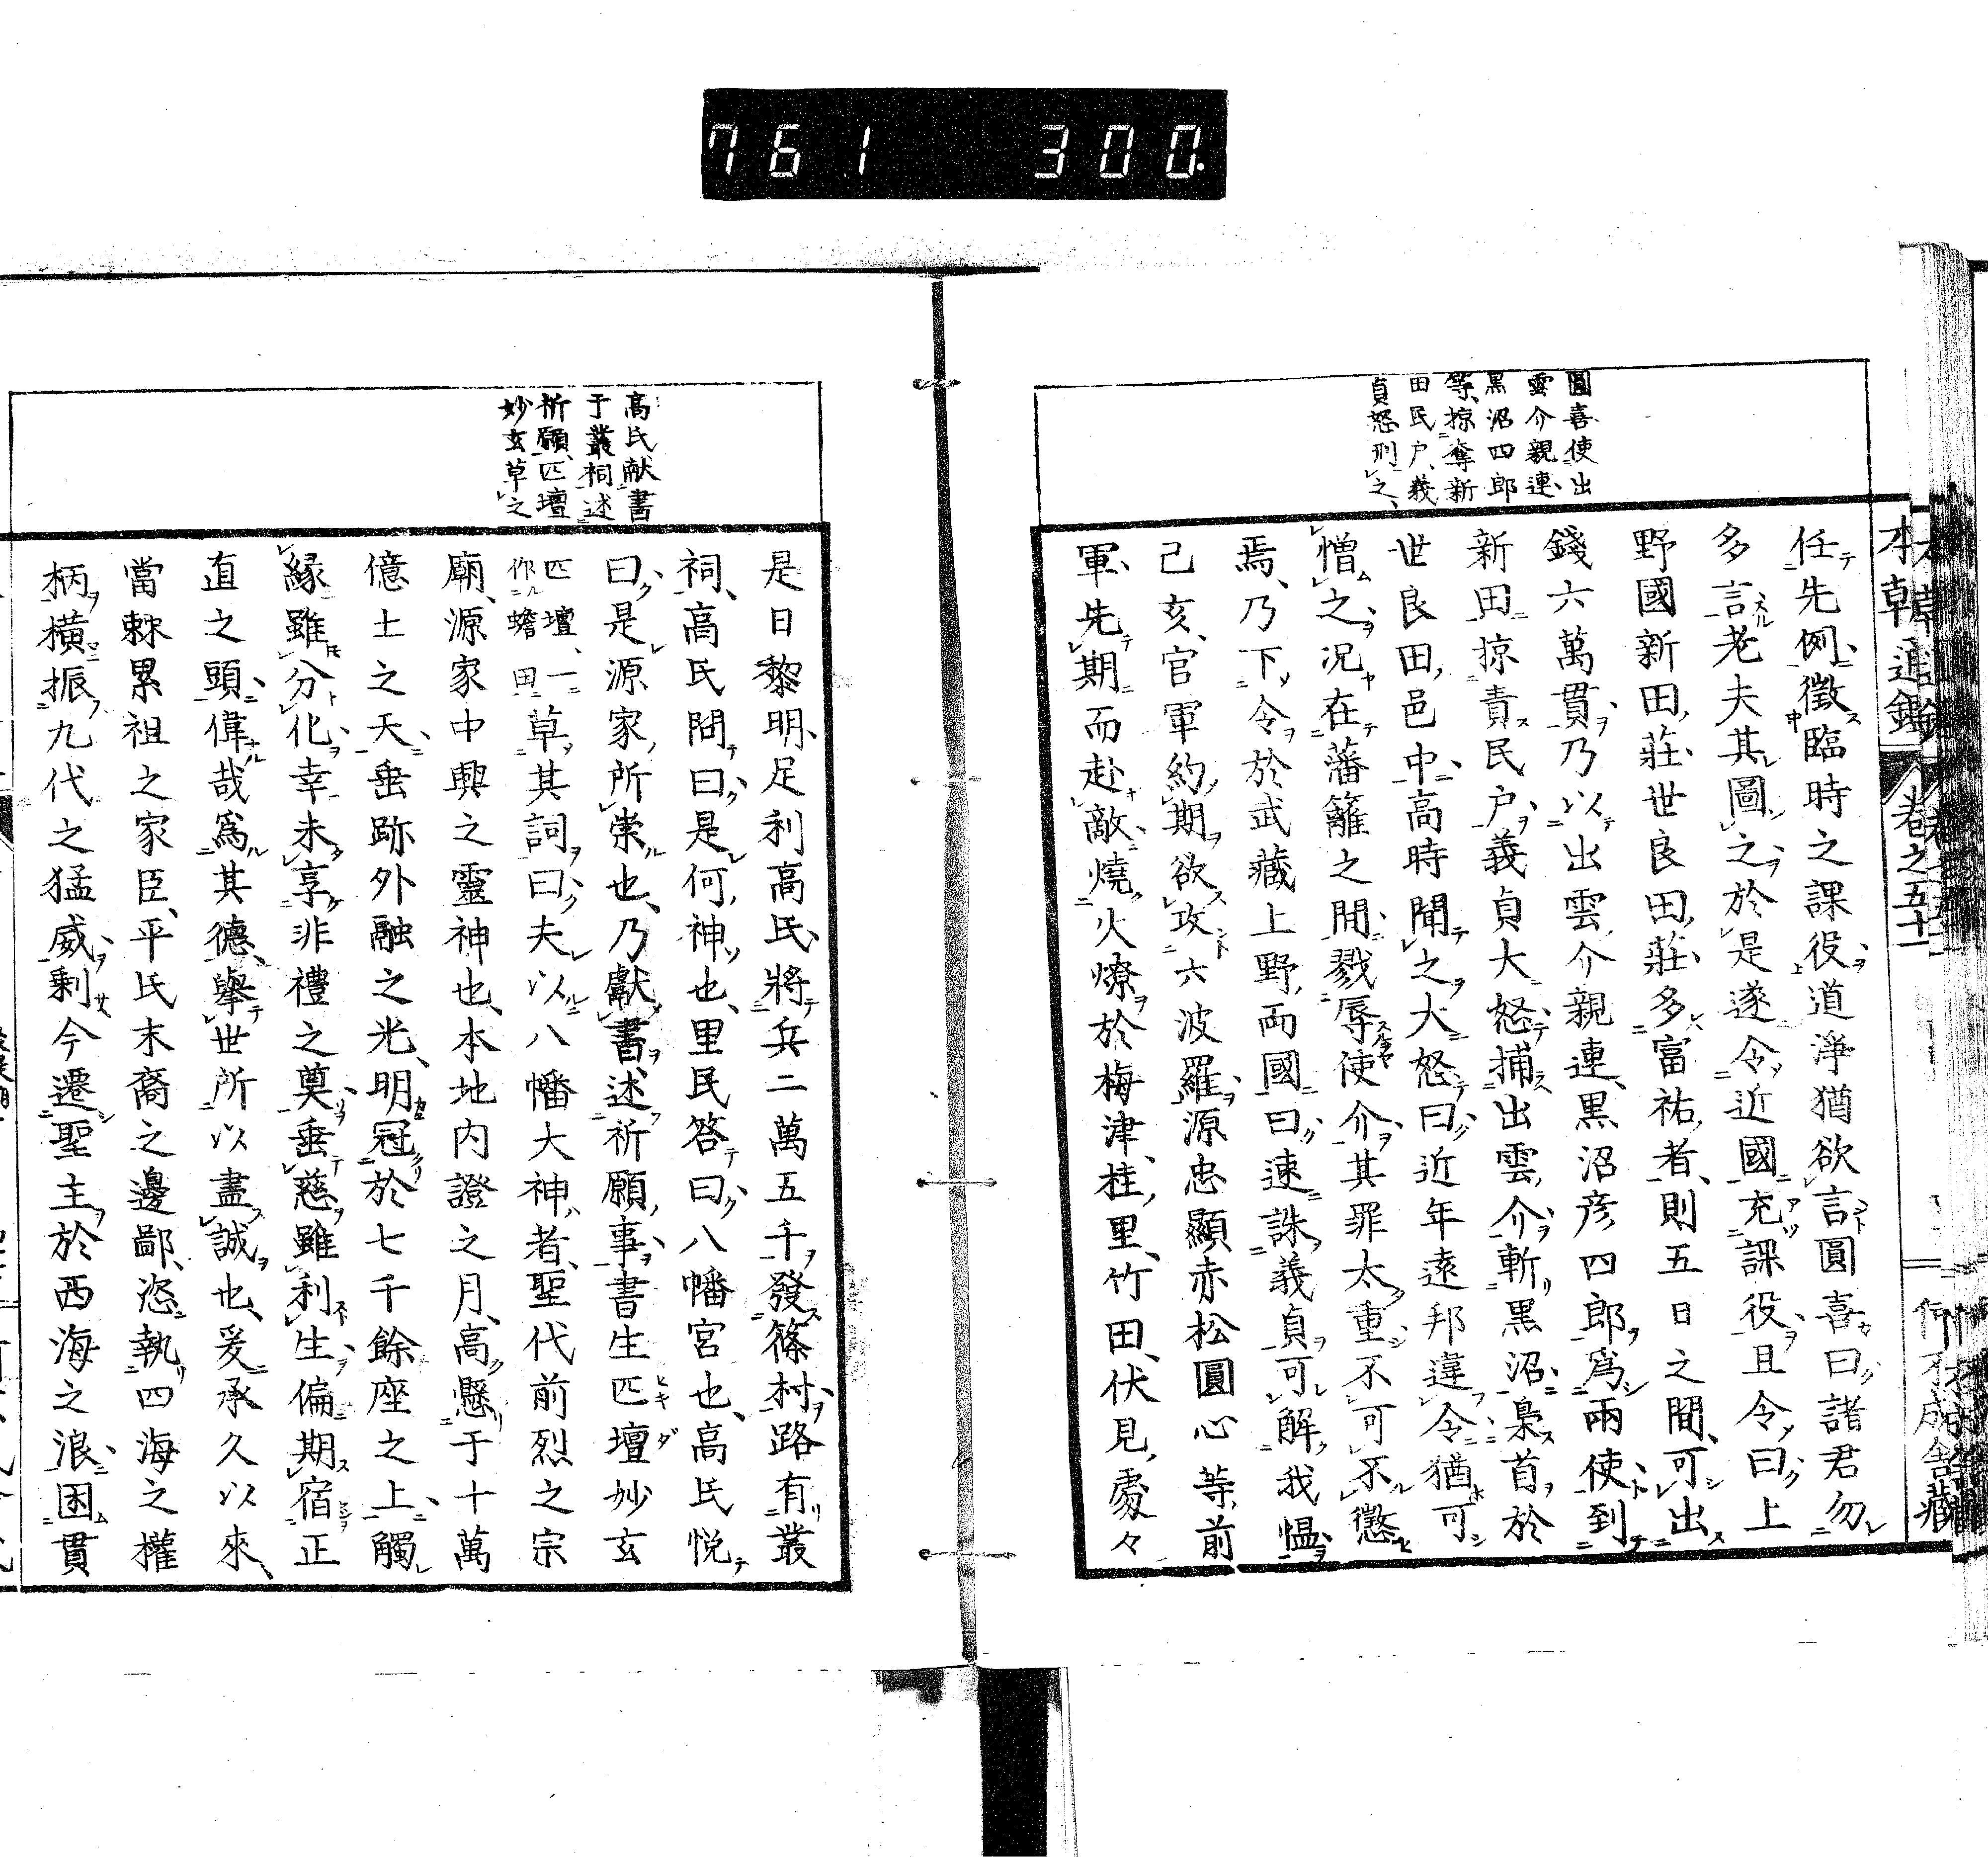 761 300.
本朝通鑑 卷之五十一
圓喜使出
雲介親連、
黒沼四郎
等、掠奪新
田民戸、義
貞怒刑之、
任先例徴臨時之課役道淨猶欲言圓喜曰諸君勿
多言老夫其圖之於是遂令近國充課役且令曰上
野國新田莊世良田莊多富祐者則五日之間可出
錢六萬貫乃以出雲介親連黒沼彦四郎爲兩使到
新田掠責民戸義貞大怒捕出雲介斬黒沼梟首於
世良田邑中高時聞之大怒曰近年遠邦違令猶可
憎之況在藩籬之間戮辱使介其罪太重不可不懲
焉乃下令於武藏上野兩國曰速誅義貞可解我慍
己亥官軍約期欲攻六波羅源忠顯赤松圓心等前
軍先期而赴敵燒火燎於梅津桂里竹田伏見處々
高氏献書
于叢祠述
祈願、匹壇
妙玄草之
是日黎明足利高氏將兵二萬五千發篠村路有叢
祠高氏問曰是何神也里民答曰八幡宮也高氏悦
曰是源家所崇也乃獻書述祈願事書生匹壇妙玄
匹壇、一
作蟾田
草其詞曰夫以八幡大神者聖代前烈之宗
廟源家中興之靈神也本地内證之月高懸于十萬
億土之天垂跡外融之光明冠於七千餘座之上觸
縁雖分化幸未享非禮之奠垂慈雖利生偏期宿正
直之頭偉哉爲其德擧世所以盡誠也爰承久以來
當棘累祖之家臣平氏末裔之邊鄙恣執四海之權
柄橫振九代之猛威剩今遷聖主於西海之浪困貫